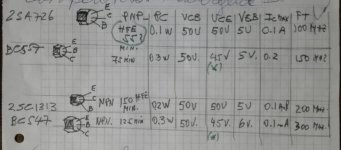 2SA726 E C B PNP HFE 553 MIN. PC 0.1W VCB 50V VCE 50V VEB 5V Ic MAX 0.1A FT 100 MHZ
BC557 C B E 75 MIN 0.3W 50V 45V (*) 5V 0.2 150 MHZ
2SC1313 E C B NPN 150 HFE MIN. 0.2W 50V 50V 5V 200 MHZ
BC547 C B E NPN. 125 MIN 0.3W 50V. 45V (*) 6V. 300 MHZ